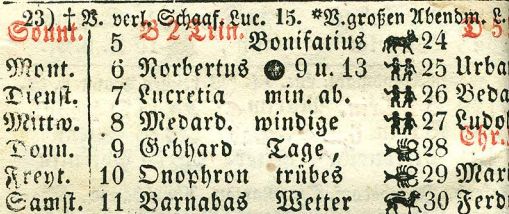 23) † V. verl. Schaaf. Luc. 15. *V. großen Abendm. L.
Sonnt. 5 B 2 Trin. Bonifatius 24
Mont. 6 Norbertus 9 u. 13 25 Urba
Dienst. 7 Lucretia min. ab. 26 Beda
Mittw. 8 Medard. windige 27 Ludol
Chr.
Donn. 9 Gebhard Tage, 28
Freyt. 10 Onophron trübes 29 Mari
Samst. 11 Barnabas Wetter 30 Ferd